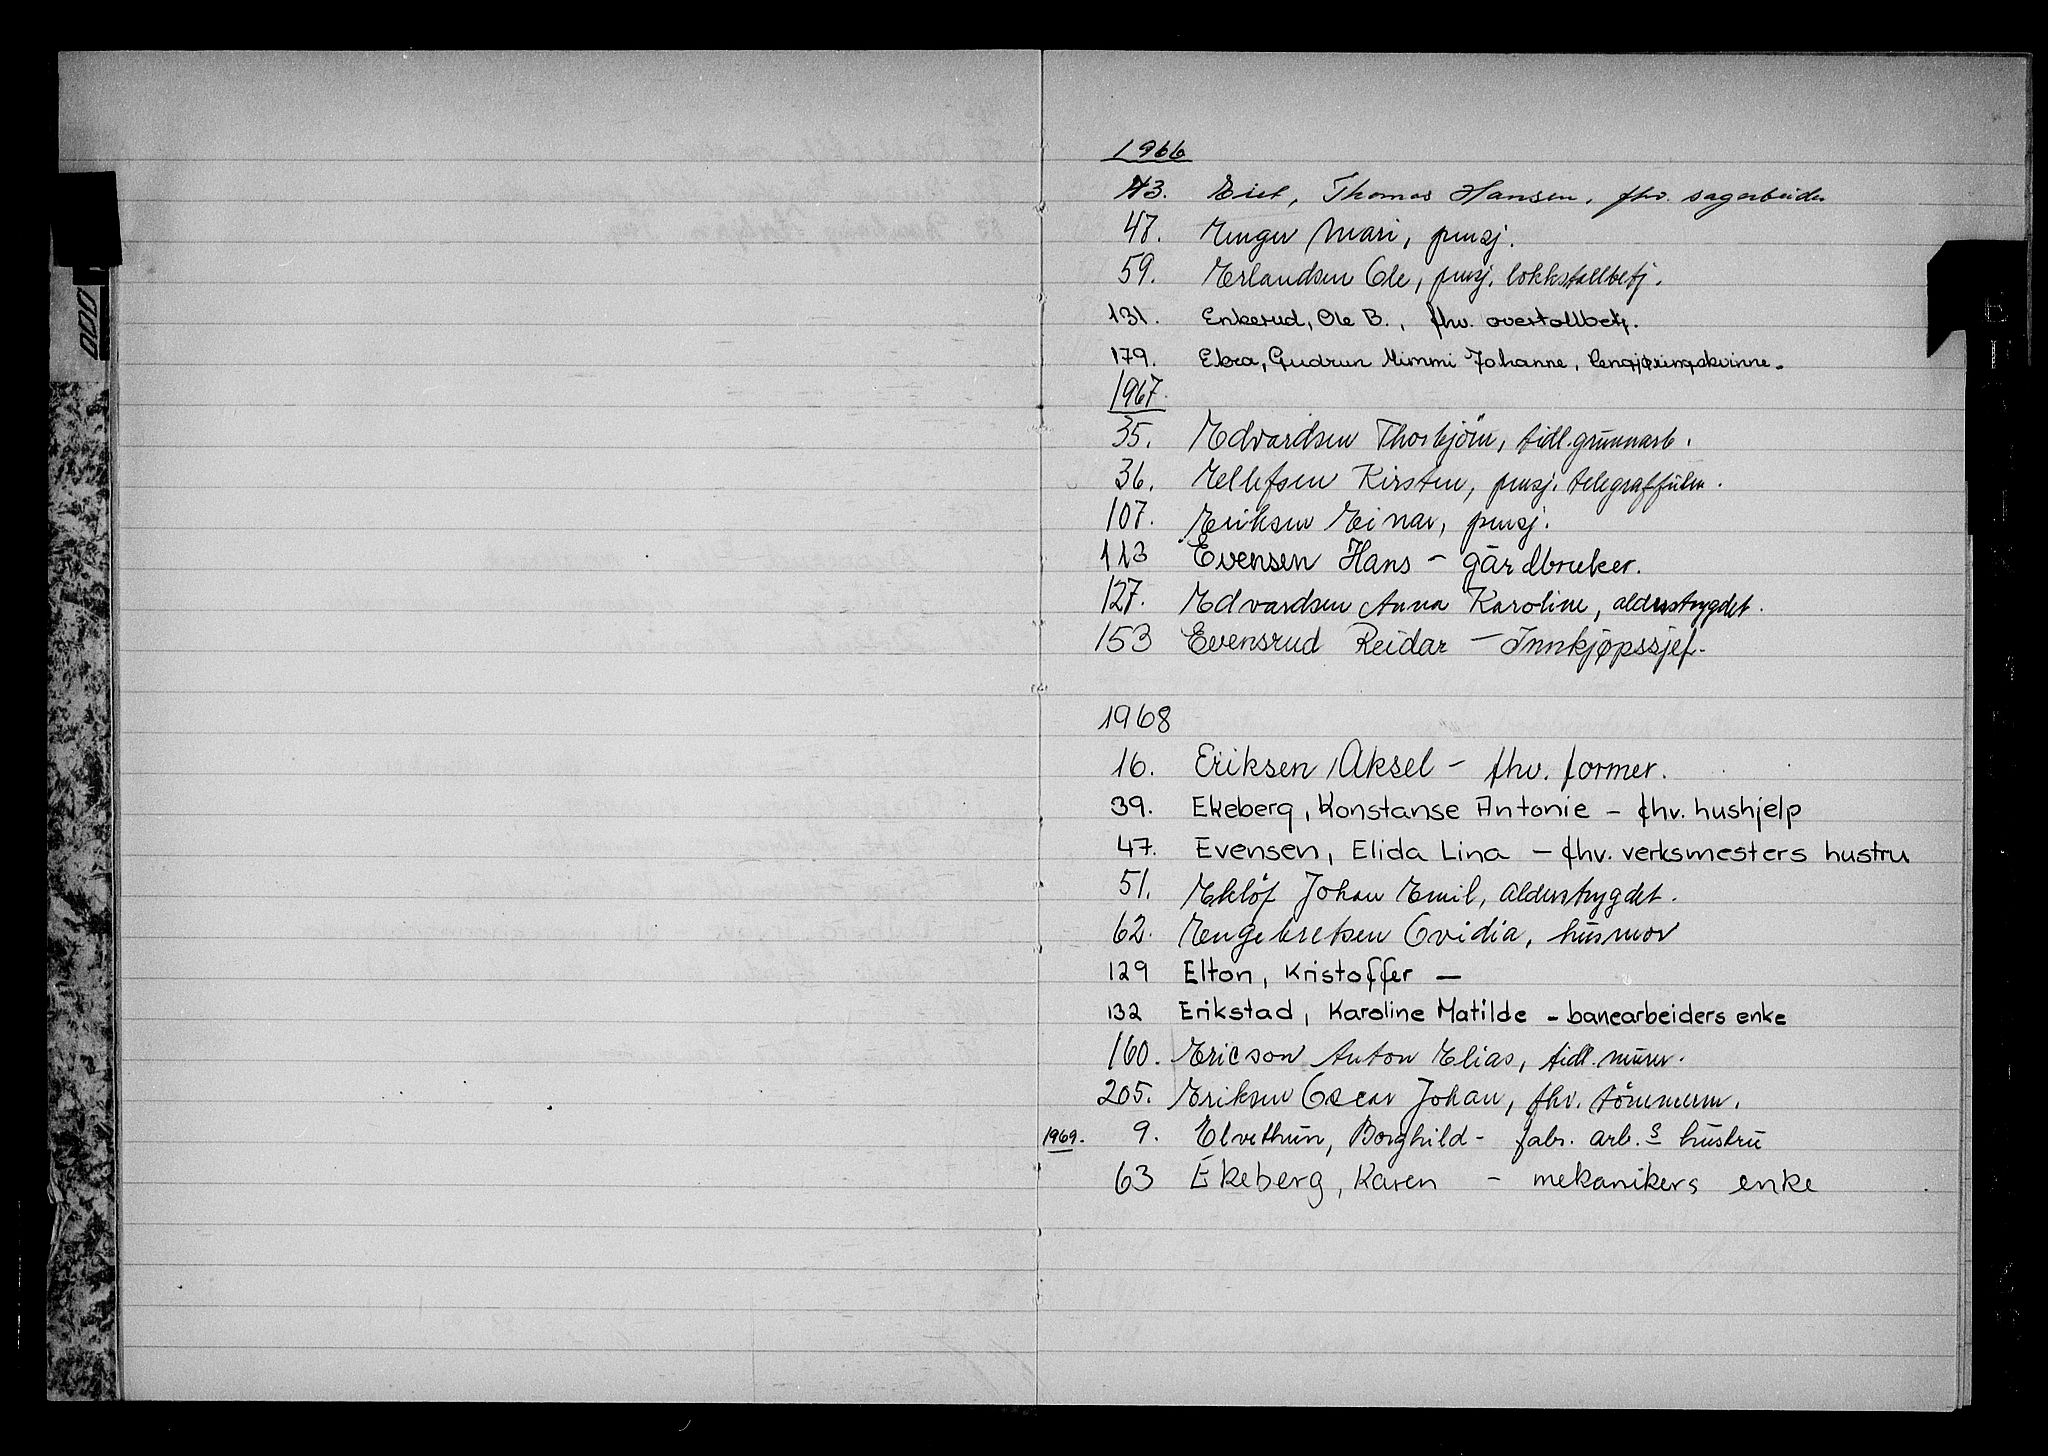 1966
43. Eiet, Thomas Hansen, fhv. sagarbeider
47. Enger Mari, pensj.
59. Erlandsen Ole, pensj. lokkstallbetj.
131. Enkerud, Ole B., fhv. overtollbetj.
179. Ebra, Gudrun Mimmi Johanne, rengjøringskvinne.
1967.
35. Edvardsen Thorbjörn, tidl. grunnarb.
36. Ellefsen Kirsten, pensj. telegraffullm.
107. Eriksen Einar, pensj.
113 Evensen Hans – gårdbruker.
127. Edvardsen Anna Karoline, alderstrygdet.
153 Evensrud Reidar – Innkjøpssjef.
1968
16. Eriksen, Aksel – fhv. former.
39. Ekeberg, Konstanse Antonie – fhv. hushjelp
47. Evensen, Elida Lina – fhv. verksmesters hustru
51. Eklöf Johan Emil, alderstrygdet.
62. Engebretsen Ovidia, husmor
129 Elton, Kristoffer —
132 Erikstad, Karoline Matilde – banearbeiders enke
160. Ericson Anton Elias, tidl. murer.
205. Eriksen Oscar Johan, fhv. tömmerm.
1969. 9. Elvethun, Borghild – fabr. arb.s hustru
63 Ekeberg, Karen – mekanikers enke